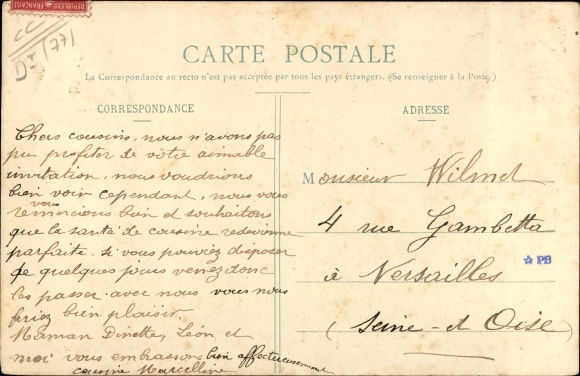 RÉPUBLIQUE FRANÇAISE
DI (77)
CARTE POSTALE
La Correspondance au recto n'est pas acceptée par tous les pays étrangers. (Se renseigner à la Poste.)
CORRESPONDANCE
Chers cousins, nous n'avons pas
pu profiter de votre aimable
invitation, nous voudrions
bien voir cependant, nous vous
vous
remercions bien et souhaitons
que la santé de cousine redevienne
parfaite. Si vous pouviez disposer
de quelques jours venez donc
les passer avec nous vous nous
feriez bien plaisir.
Maman Dinette, Léon et
moi vous embrassons bien affectueusement
cousine Marcelline
ADRESSE
Monsieur Wilmet
4 rue Gambetta
à Versailles
(Seine-et Oise)
PB